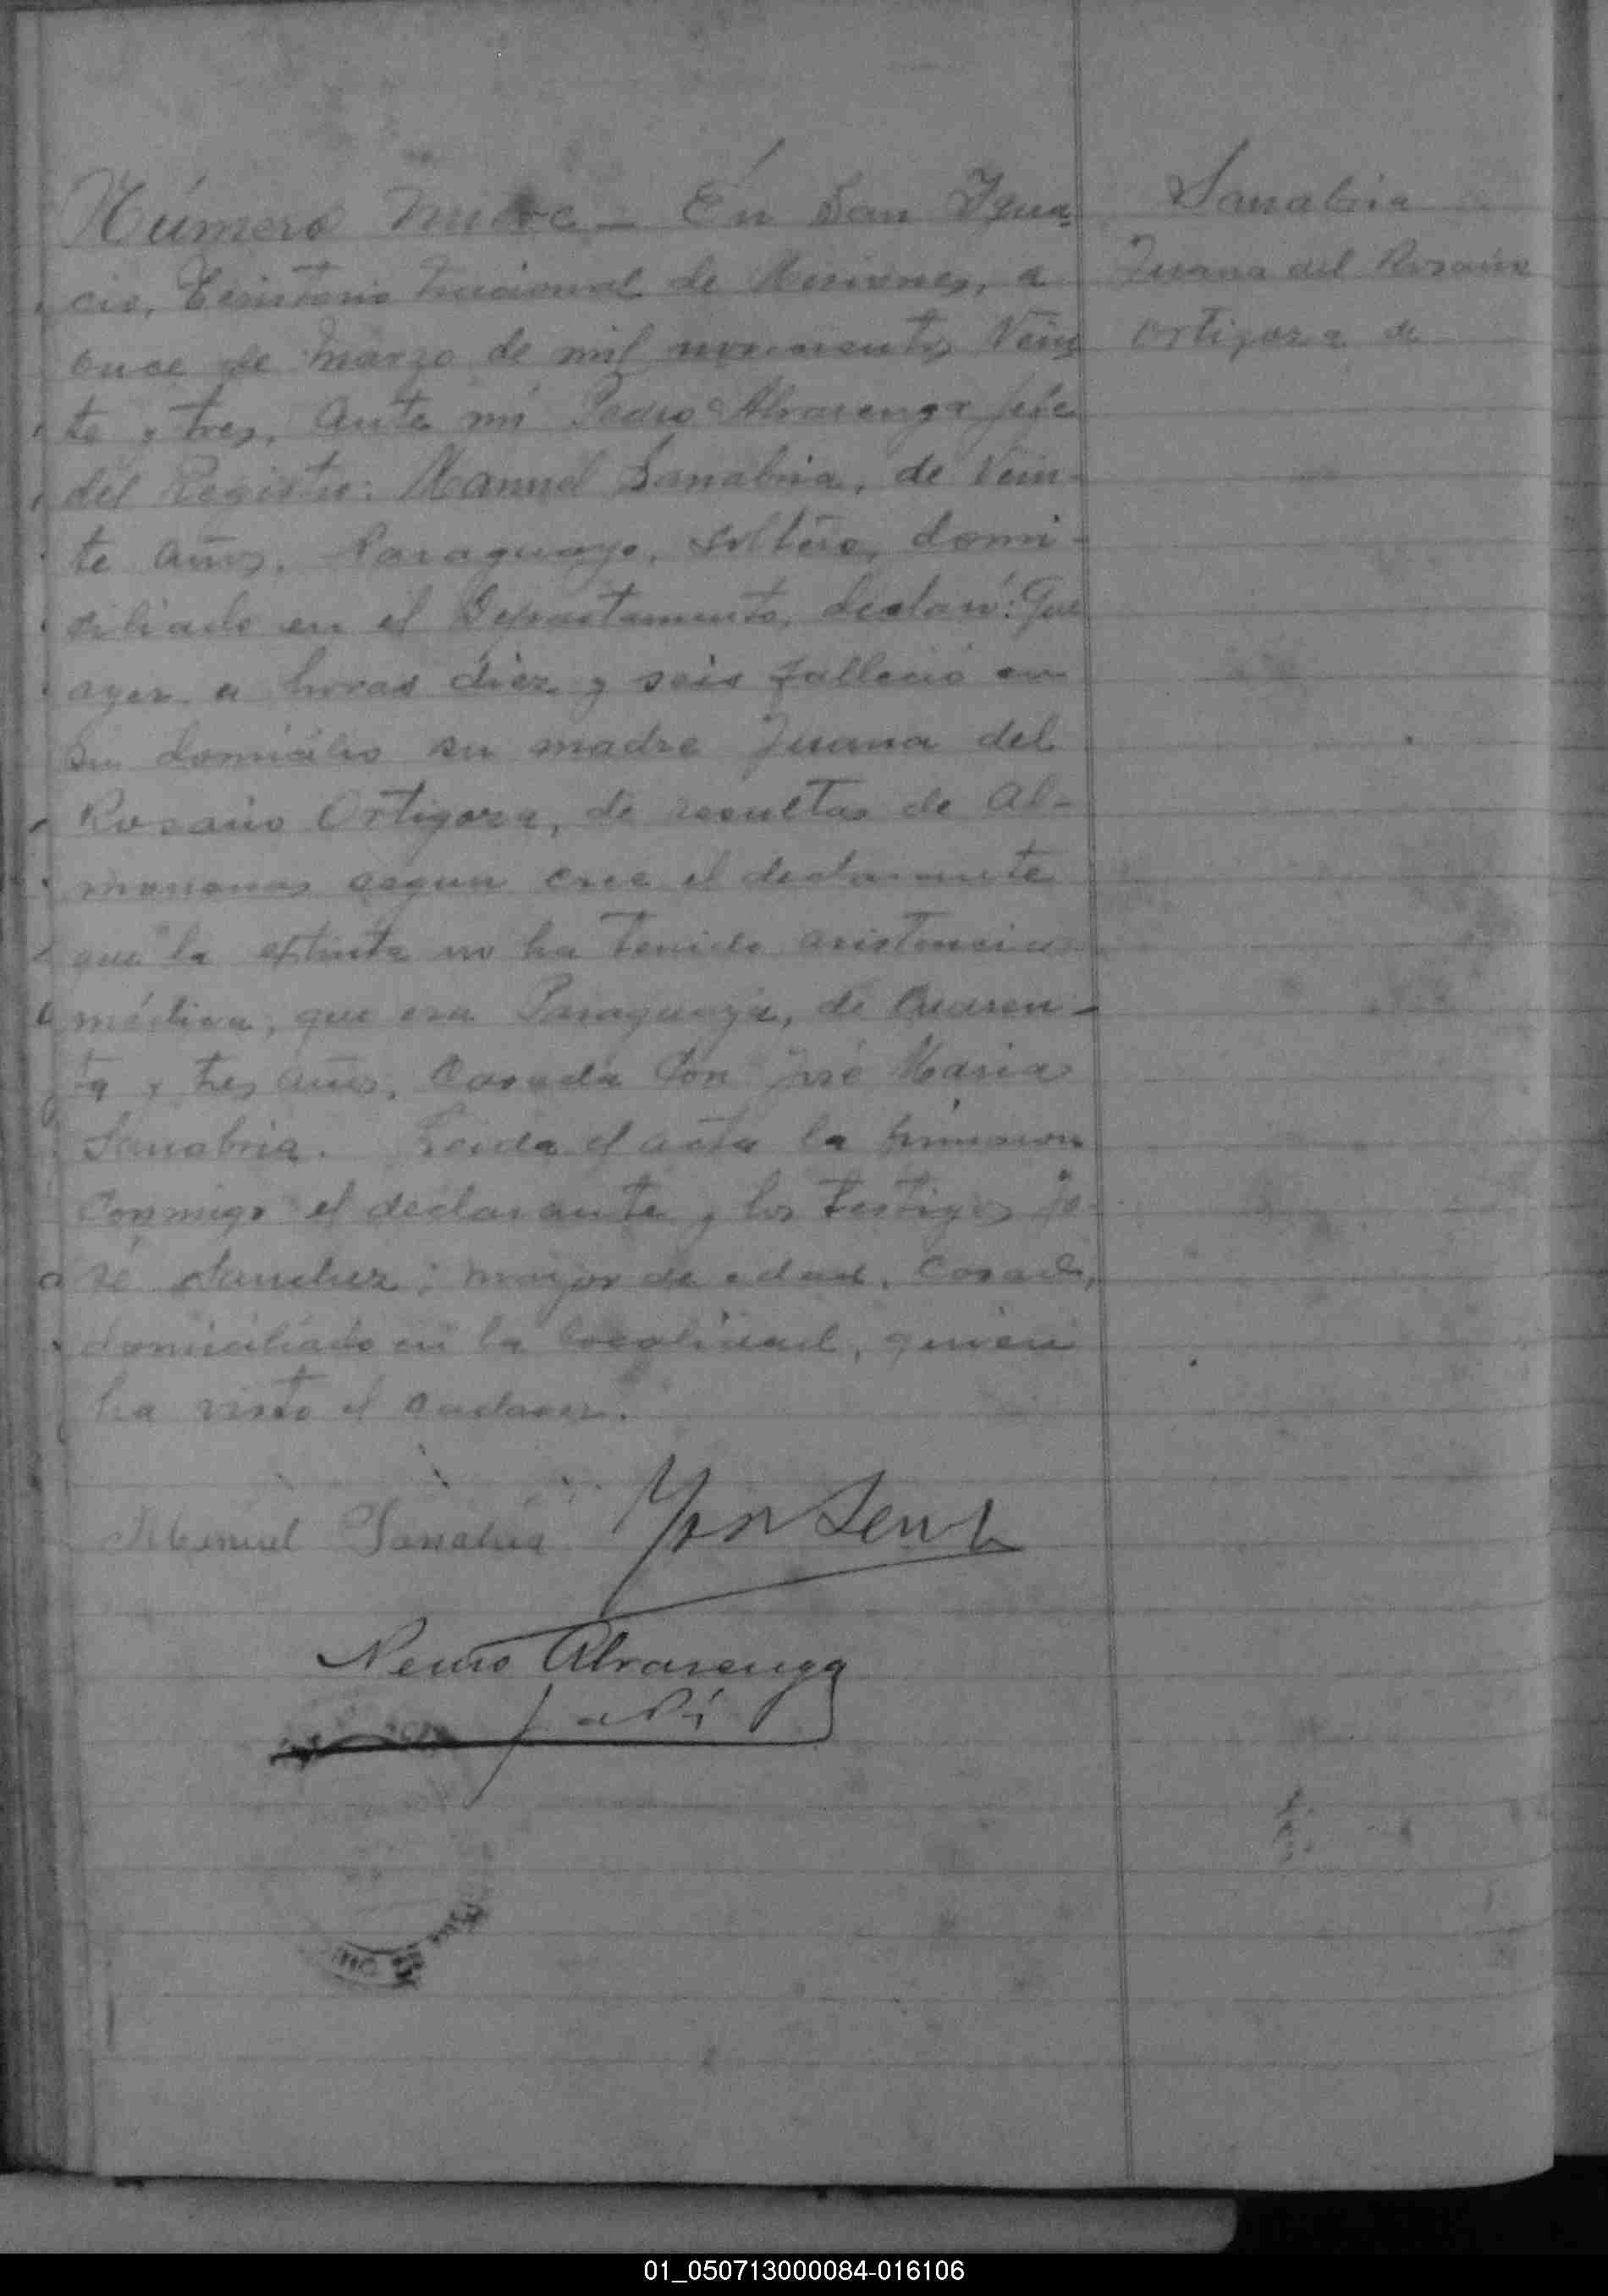 Número nueve - En San Igna-
cio, Territorio Nacional de Misiones, a
once de Marzo de mil novecientos Vein
te y tres, ante mi Pedro Alvarenga Jefe
del Registro: Manuel Sanabria, de Vein-
te años, Paraguayo, soltero, domi-
ciliado en el Departamento, declaró: Que
ayer a horas diez y seis falleció en
su domicilio su madre Juana del
Rosario Ortigoza, de resultas de al-
morranas segun cree el declarante
que la extinta no ha tenido asistencia
médica, que era Paraguaya, de Cuaren-
ta y tres años, Casada con José Maria
Sanabria. Leida el acta la firmaron
conmigo el declarante y los testigos Jo-
sé Sanchez; mayor de edad, casado,
domiciliado en la localidad, quien
ha visto el cadaver.
Manuel Sanabria
Alvarenga
Sanabria
Juana del Rosario
Ortigoza de
01_050713000084-016106